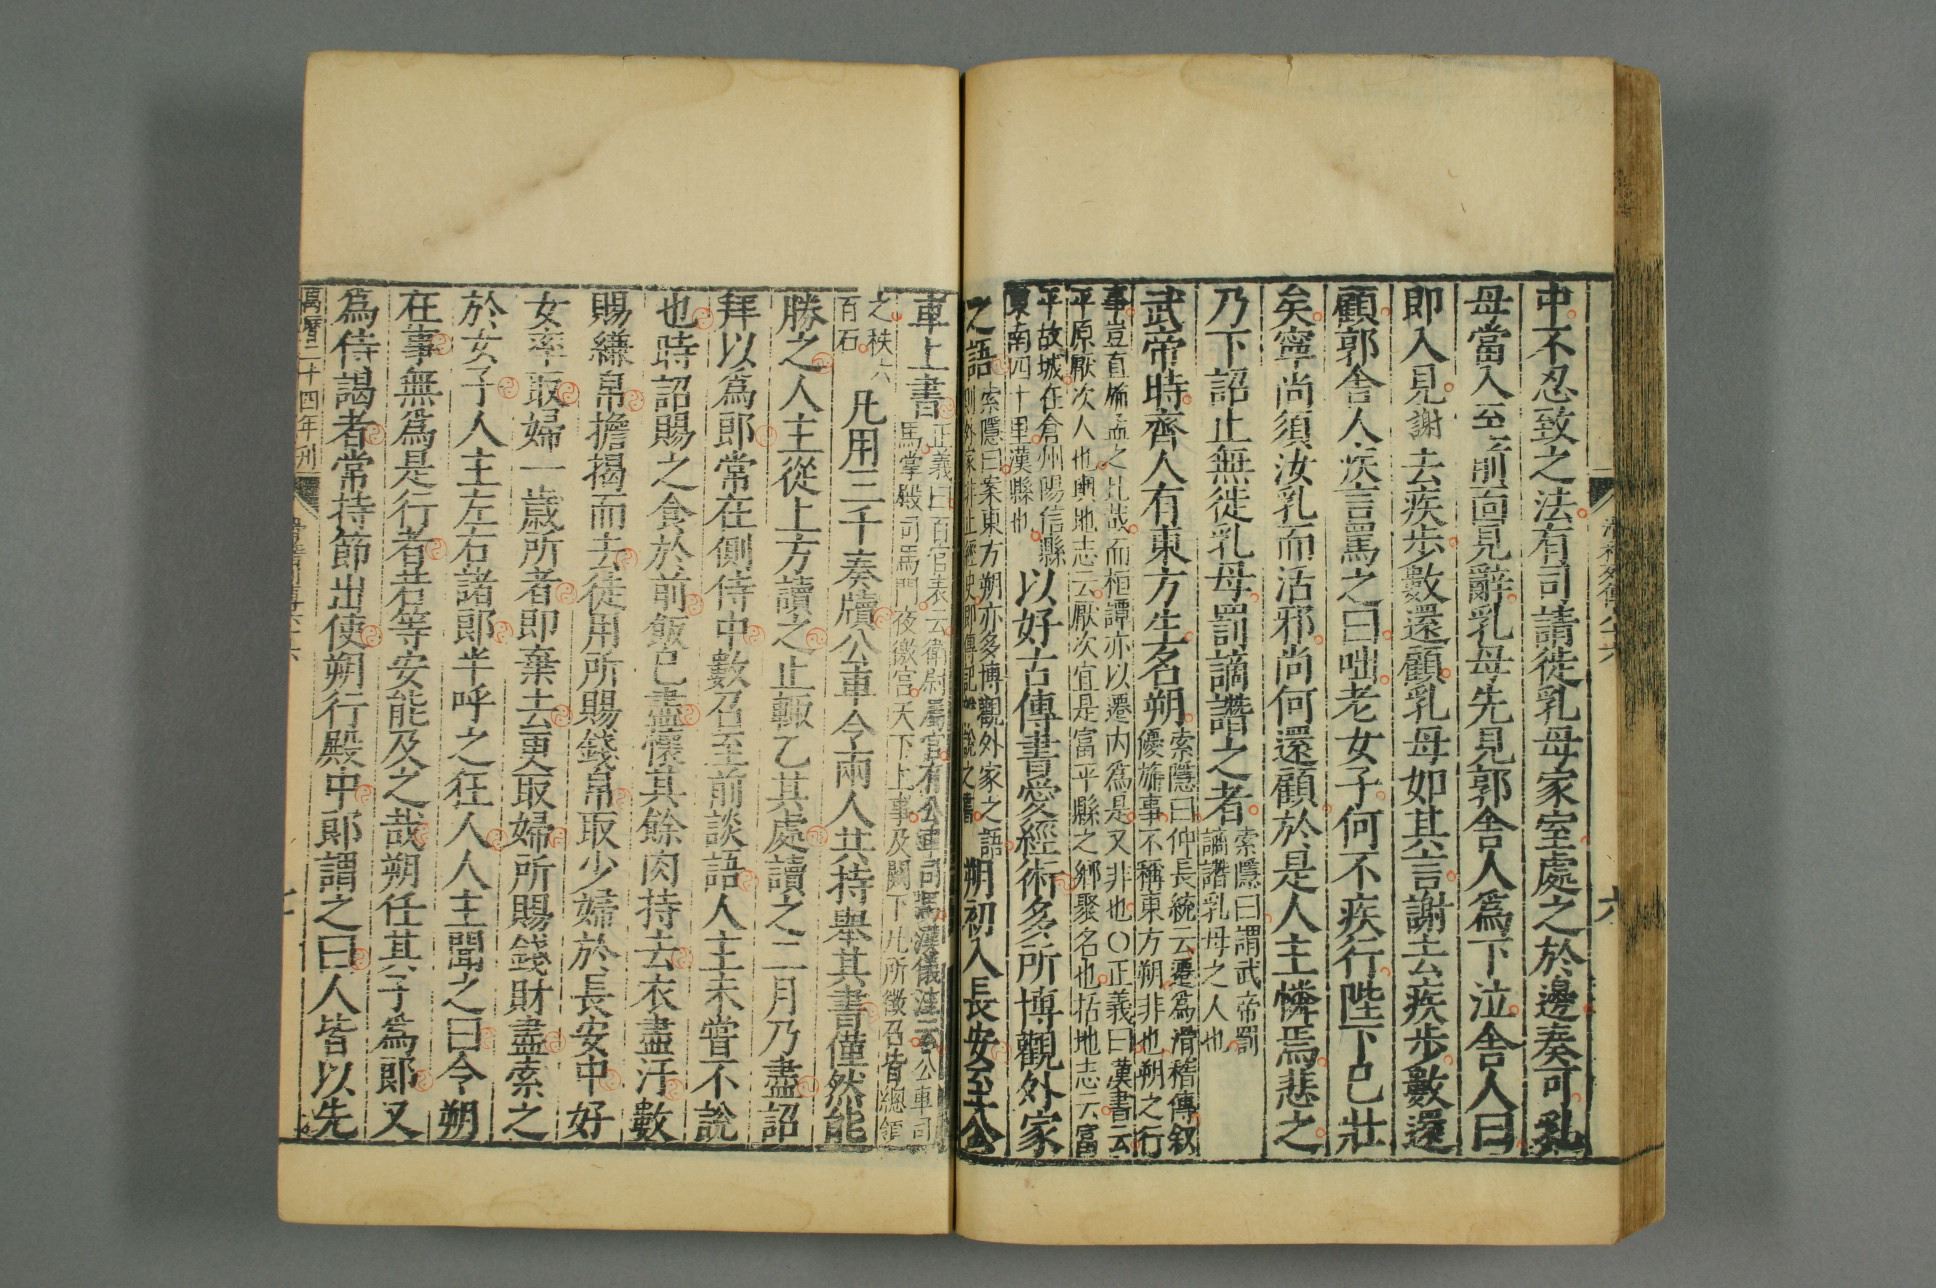 中不忍致之法有司請徙乳母家室處之於邊奏可乳
母當入至前面見辭乳母先見郭舍人為下泣舍人曰
即入見謝去疾步數還顧乳母如其言謝去疾步數還
顧郭舍人疾言罵之曰咄老女子何不疾行陛下已壯
矣寧尚須汝乳而活邪尚何還顧於是人主憐焉悲之
乃下詔止無徙乳母罰謫譖之者
索隱曰謂武帝罰
謫譖乳母之人也
武帝時齊人有東方生名朔
索隱曰仲長統云遷為滑稽傳叙
優旃事不稱東方朔非也朔之行
事豈直旃孟之比哉而桓譚亦以遷內為是又非也○正義曰漢書云
平原厭次人也輿地志云厭次宜是富平縣之鄉聚名也括地志云富
平故城在倉州陽信縣
東南四十里漢縣也
以好古傳書愛經術多所博觀外家
之語
索隱曰案東方朔亦多博觀外家之語
則外家非正經即史傳記雜說之書
朔初入長安至公
車上書
正義曰百官表云衛尉屬官有公車司馬漢儀注云公車司
馬掌殿司馬門夜徼宮天下上事及闕下凡所徵召皆總領
之秩六
百石
凡用三千奏牘公車令兩人共持舉其書僅然能
勝之人主從上方讀之止輒乙其處讀之二月乃盡詔
拜以為郎常在側侍中數召至前談語人主未嘗不說
也時詔賜之食於前飯已盡懷其餘肉持去衣盡汙數
賜縑帛擔揭而去徒用所賜錢帛取少婦於長安中好
女率取婦一歲所者即棄去更取婦所賜錢財盡索之
於女子人主左右諸郎半呼之狂人人主聞之曰令朔
在事無為是行者若等安能及之哉朔任其子為郎又
為侍謁者常持節出使朔行殿中郎謂之曰人皆以先
萬曆二十四年刊